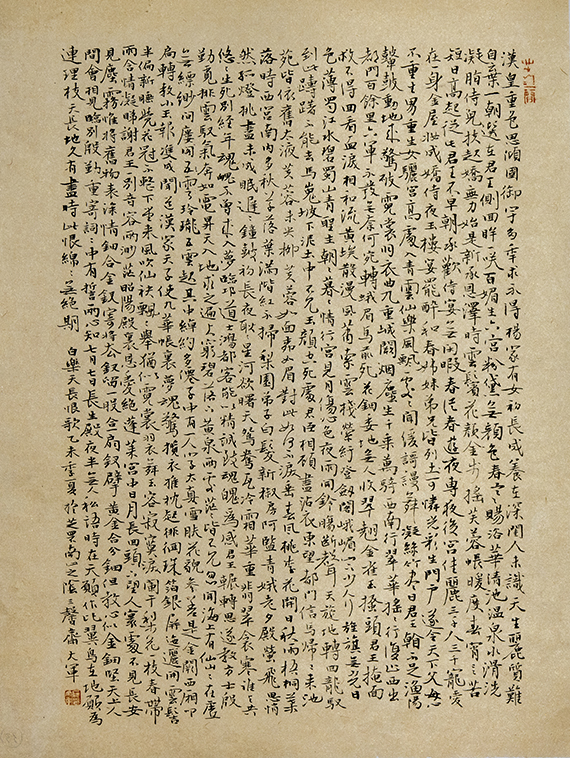 漢皇重色思傾國御宇多年求不得楊家有女初長成養在深閨人未識天生麗質難
自棄一朝選在君王側回眸一笑百媚生六宮粉黛無顏色春寒賜浴華清池溫泉水滑洗
凝脂侍兒扶起嬌無力始是新承恩澤時雲鬢花顏金步搖芙蓉帳暖度春宵春宵苦
短日高起從此君王不早朝承歡侍宴無閒暇春從春遊夜專夜後宮佳麗三千人三千寵愛
在身金屋妝成嬌侍夜玉樓宴罷醉和春姊妹弟兄皆列土可憐光彩生門戶遂令天下父母心
不重生男重生女驪宮高處入青雲仙樂風飄處處聞緩歌謾舞凝絲竹盡日君王看不足漁陽
鼙鼓動地來驚破霓裳羽衣曲九重城闕煙塵生千乘萬騎西南行翠華搖搖行復止西出
都門百餘里六軍不發無奈何宛轉蛾眉馬前死花鈿委地無人收翠翹金雀玉搔頭君王掩面
救不得回看血淚相和流黃埃散漫風蕭索雲棧縈紆登劍閣峨嵋山下少人行旌旗無光日
色薄蜀江水碧蜀山青聖主朝朝暮暮情行宮見月傷心色夜雨聞鈴腸斷聲天旋地轉回龍馭
到此躊躇不能去馬嵬坡下泥土中不見玉顏空死處君臣相顧盡沾衣東望都門信馬歸歸來池
苑皆依舊太液芙蓉未央柳芙蓉如面柳如眉對此如何不淚垂春風桃李花開日秋雨梧桐葉
落時西宮南內多秋草落葉滿階紅不掃梨園弟子白髮新椒房阿監青娥老夕殿螢飛思悄
然孤燈挑盡未成眠遲遲鐘鼓初長夜耿耿星河欲曙天鴛鴦瓦冷霜華重翡翠衾寒誰與共
悠悠生死別經年魂魄不曾來入夢臨邛道士鴻都客能以精誠致魂魄為感君王輾轉思遂教方士殷
勤覓排雲馭氣奔如電昇天入地求之遍上窮碧落下黃泉兩處茫茫皆不見忽聞海上有仙山山在虛
無縹緲間樓閣玲瓏五雲起其中綽約多仙子中有一人字太真雪膚花貌參差是金闕西廂叩
玉扃轉教小玉報雙成聞道漢家天子使九華帳裏夢魂驚攬衣推枕起徘徊珠箔銀屏迤邐開雲髻
半偏新睡覺花冠不整下堂來風吹仙袂飄颻舉猶似霓裳羽衣舞玉容寂寞淚闌干梨花一枝春帶
雨含情凝睇謝君王一別音容兩渺茫昭陽殿裏恩愛絕蓬萊宮中日月長回頭下望人寰處不見長安
見塵霧惟將舊物表深情鈿合金釵寄將去釵留一股合一扇釵擘黃金合分鈿但教心似金鈿堅天上人
間會相見臨別殷勤重寄詞詞中有誓兩心知七月七日長生殿夜半無人私語時在天願作比翼鳥在地願為
連理枝天長地久有盡時此恨綿綿無絕期 白樂天長恨歌乙未季夏於芝罘南山之陰馨齋大軍